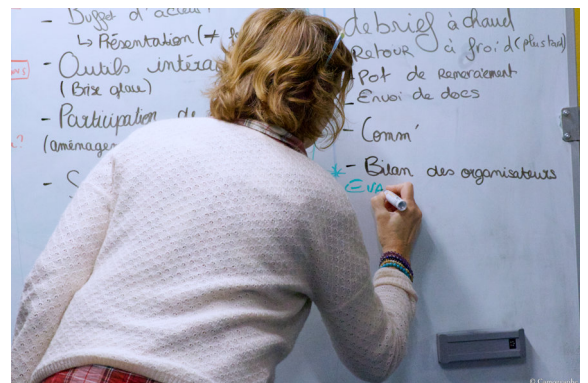 - Buffet d'accueil ?
↳ Présentation (≠
- Outils
(Brise glace)
- Participation de
(aménage
-
debrief à chaud
Retour à froid (plus tard)
Pot de Remerciement
- Envoi de docs
- Comm'
* - Bilan des organisateurs
EVA